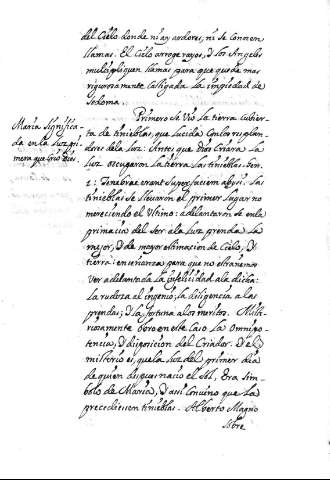 del Cielo donde ni ay ardores, ni se conocen
llamas. El Cielo arroge rayos, y los Angeles
multipliquen llamas para que quede mas
rigurosamente castigada la impiedad de
Sodoma.
Primero se vio la tierra cubier-
ta de tinieblas, que lucida con los resplan-
dores de la luz: Antes que Dios criara la
luz ocuparon la tierra las tinieblas. Gen.
1: Tenebrae erant super faciem abyssi. Las
tinieblas se llevaron el primer lugar no
mereciendo el ultimo: adelantaron se en la
primacia del ser a la luz prenda la
mejor, y de mayor estimacion de Cielo, y
tierra: enseñanza para que no estrañemos
ver adelantada la infelicidad a la dicha:
la rudeza al ingenio, la diligencia a las
prendas; y la fortuna a los meritos.
obro en este caso la Omnipo-
tencia, y disposicion del Criador. Y el
misterio es, que la luz del primer dia
de quien despues nacio el Sol, era sim-
bolo de Maria, y assi convino que la
precediessen tinieblas. Alberto Magno
sobre
Maria significa-
da en la luz pri-
mera que crio Dios.